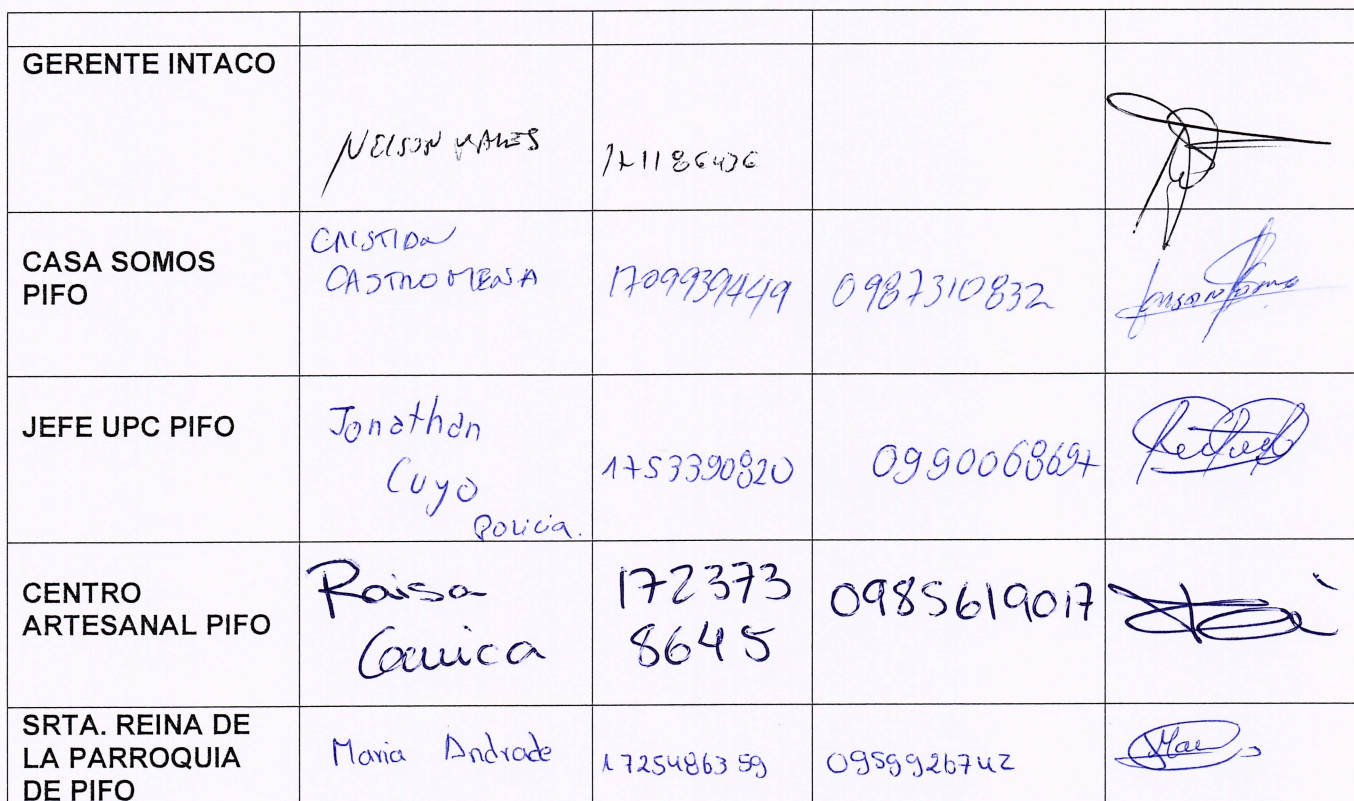 GERENTE INTACO
NELSON
CASA SOMOS
PIFO
CRISTIAN
CASTRO MENSA
1709939449
0987310832
JEFE UPC PIFO
Jonathan
Cuyo
Policia.
1753390820
0990068697
CENTRO
ARTESANAL PIFO
Raisa
172373
8645
0985619017
SRTA. REINA DE
LA PARROQUIA
DE PIFO
Maria Andrade
1725486359
0959926742